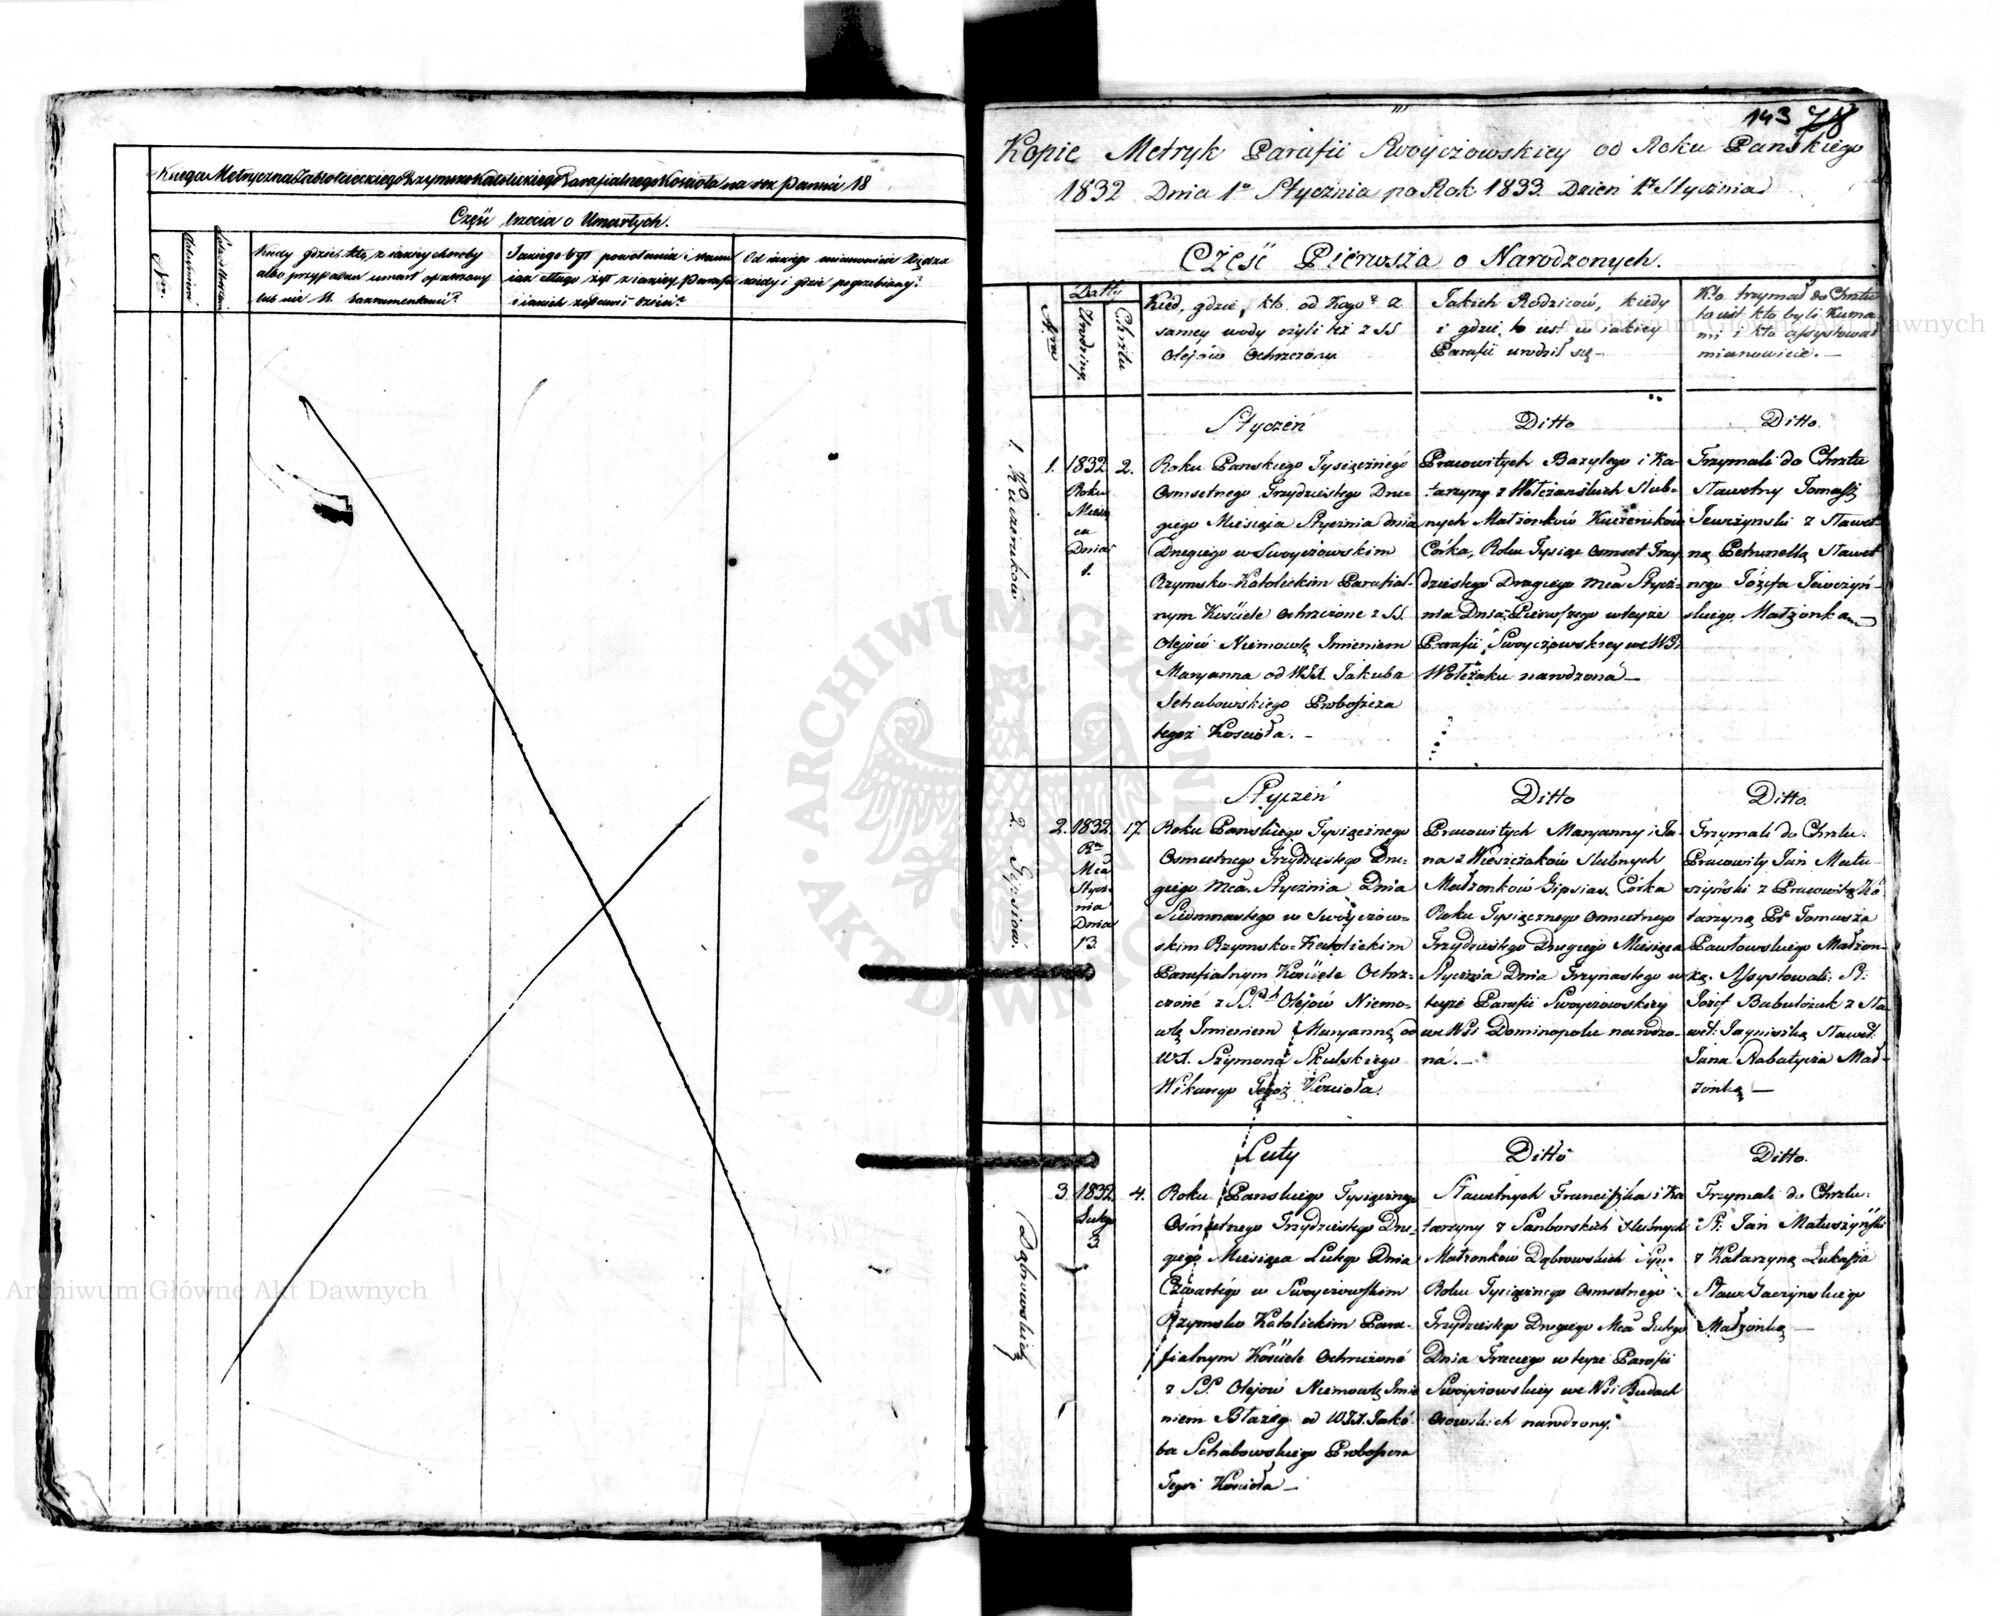 Księga Metryczna Zabłocieckiego Rzymsko Katolickiego Parafialnego Kościoła na rok Panski 18
Część trzecia o Umarłych.
Nro.
Kiedy gdzie kto, z iakiey choroby
albo przypadku umarł opatrzony
lub nie SS. Sakramentami?
Jakiego był powołania i stanu
iak długo żył z iakiey Parafii
i iakich zostawił dzieci?
Od iakiego mianowicie Księdza
kiedy i gdzie pogrzebiony?
143 78
Kopie Metryk Parafii Swoyczowskiey od Roku Panskiego
1832 Dnia 1º Stycznia po Rok 1833 Dzień 1º Stycznia
Część Pierwsza o Narodzonych.
Nro
Datty
Urodziny.
Chrztu
Kied, gdzie, kto od Kogo z
samey wody czyli też z SS
Olejów Ochrzczony
Jakich Rodziców, kiedy
i gdzie, to iest w iakiey
Parafii urodził się
Kto trzymał do Chrztu
to iest kto byli Kuma
mi i kto assystował
mianowicie. —
1. Kuczeruków
1.
1832
Roku
Miesią
ca
Dnia
1.
2.
Styczeń
Roku Panskiego Tysiącznego
Osmsetnego Trzydziestego Dru-
giego Miesiąca Stycznia dnia
Drugiego w Swoyczowskim
Rzymsko-Katolickim Parafial-
nym Kościele Ochrzczone z SS.
Olejów Niemowlę Imieniem
Maryanna od WJX. Jakuba
Schabowskiego Proboszcza
tegoż Kościoła. —
Ditto
Pracowitych Bazylego i Ka-
tarzyny z Wołczańskich slub-
nych Małżonków Kuczeruków
Córka, Roku Tysiąc Osmset Trzy
dziestego Drugiego Mca Stycz-
nia Dnia Pierwszego w teyże
Parafii Swoyczowskiey we Wsi
Wołczaku narodzona —
Ditto.
Trzymali do Chrztu
Sławetny Tomasz
Jewczynski z Sławet
ną Petrunellą Sławet
nego Józefa Jewczyń-
skiego Małżonką —
2. Gipsiów.
2.
1832.
Ru
Mca
Stycz-
nia
Dnia
13
17.
Styczeń
Roku Panskiego Tysiącznego
Osmsetnego Trzydziestego Dru-
giego Mca. Stycznia Dnia
Siedmnastego w Swoyczow-
skim Rzymsko-Katolickim
Parafialnym Kościele Ochrz-
czone z SS. Olejów Niemo-
wlę Imieniem Maryanną od
WJX. Szymona Skulskiego
Wikarego Tegoż Kościoła.
Ditto
Pracowitych Maryanny i Ja-
na z Wieszczaków slubnych
Małżonków Gipsiów. Córka
Roku Tysiącznego Osmsetnego
Trzydziestego Drugiego Miesiąca
Stycznia Dnia Trzynastego w
teyże Parafii Swoyczowskiey
we Wsi Dominopolu narodzo-
ná. —
Ditto.
Trzymali do Chrztu.
Pracowity Jan Matu-
szyński z Pracowitą Ka
tarzyną Pr Tomasza
Pawłowskiego Małżon-
ką. Assystowali: Sł:
Józef Babulczuk z Sła-
wet: Jagnieszką Sławet:
Jana Rabatycza Mał-
żonką —
Dąbrowskich
3.
1832
Lutego
3.
4.
Luty
Roku Panskiego Tysiącznego
Osmsetnego Trzydziestego Dru-
giego Miesiąca Lutego Dnia
Czwartego w Swoyczowskim
Rzymsko Katolickim Para-
fialnym Kościele Ochrzczone
z SS. Olejów Niemowlę Imie
niem Błażey od WJX. Jakó
ba Schabowskiego Proboszcza
Tegoż Kościoła —
Ditto
Sławetnych Franciszka i Ka
tarzyny z Sanborskich slubnych
Małżonków Dąbrowskich Syn.
Roku Tysiącznego Osmsetnego
Trzydziestego Drugiego Mca Lutego
Dnia Trzeciego w teyże Parafii
Swoyczowskiey we Wsi Budach
Osowskich narodzony.
Ditto.
Trzymali do Chrztu:
Sł: Jan Matuszyński
z Katarzyną Łukasza
Sław: Jaczynskiego
Małżonką —
Archiwum Główne Akt Dawnych
Archiwum Główne Akt Dawnych
ARCHIWUM GŁÓWNE AKT DAWNYCH